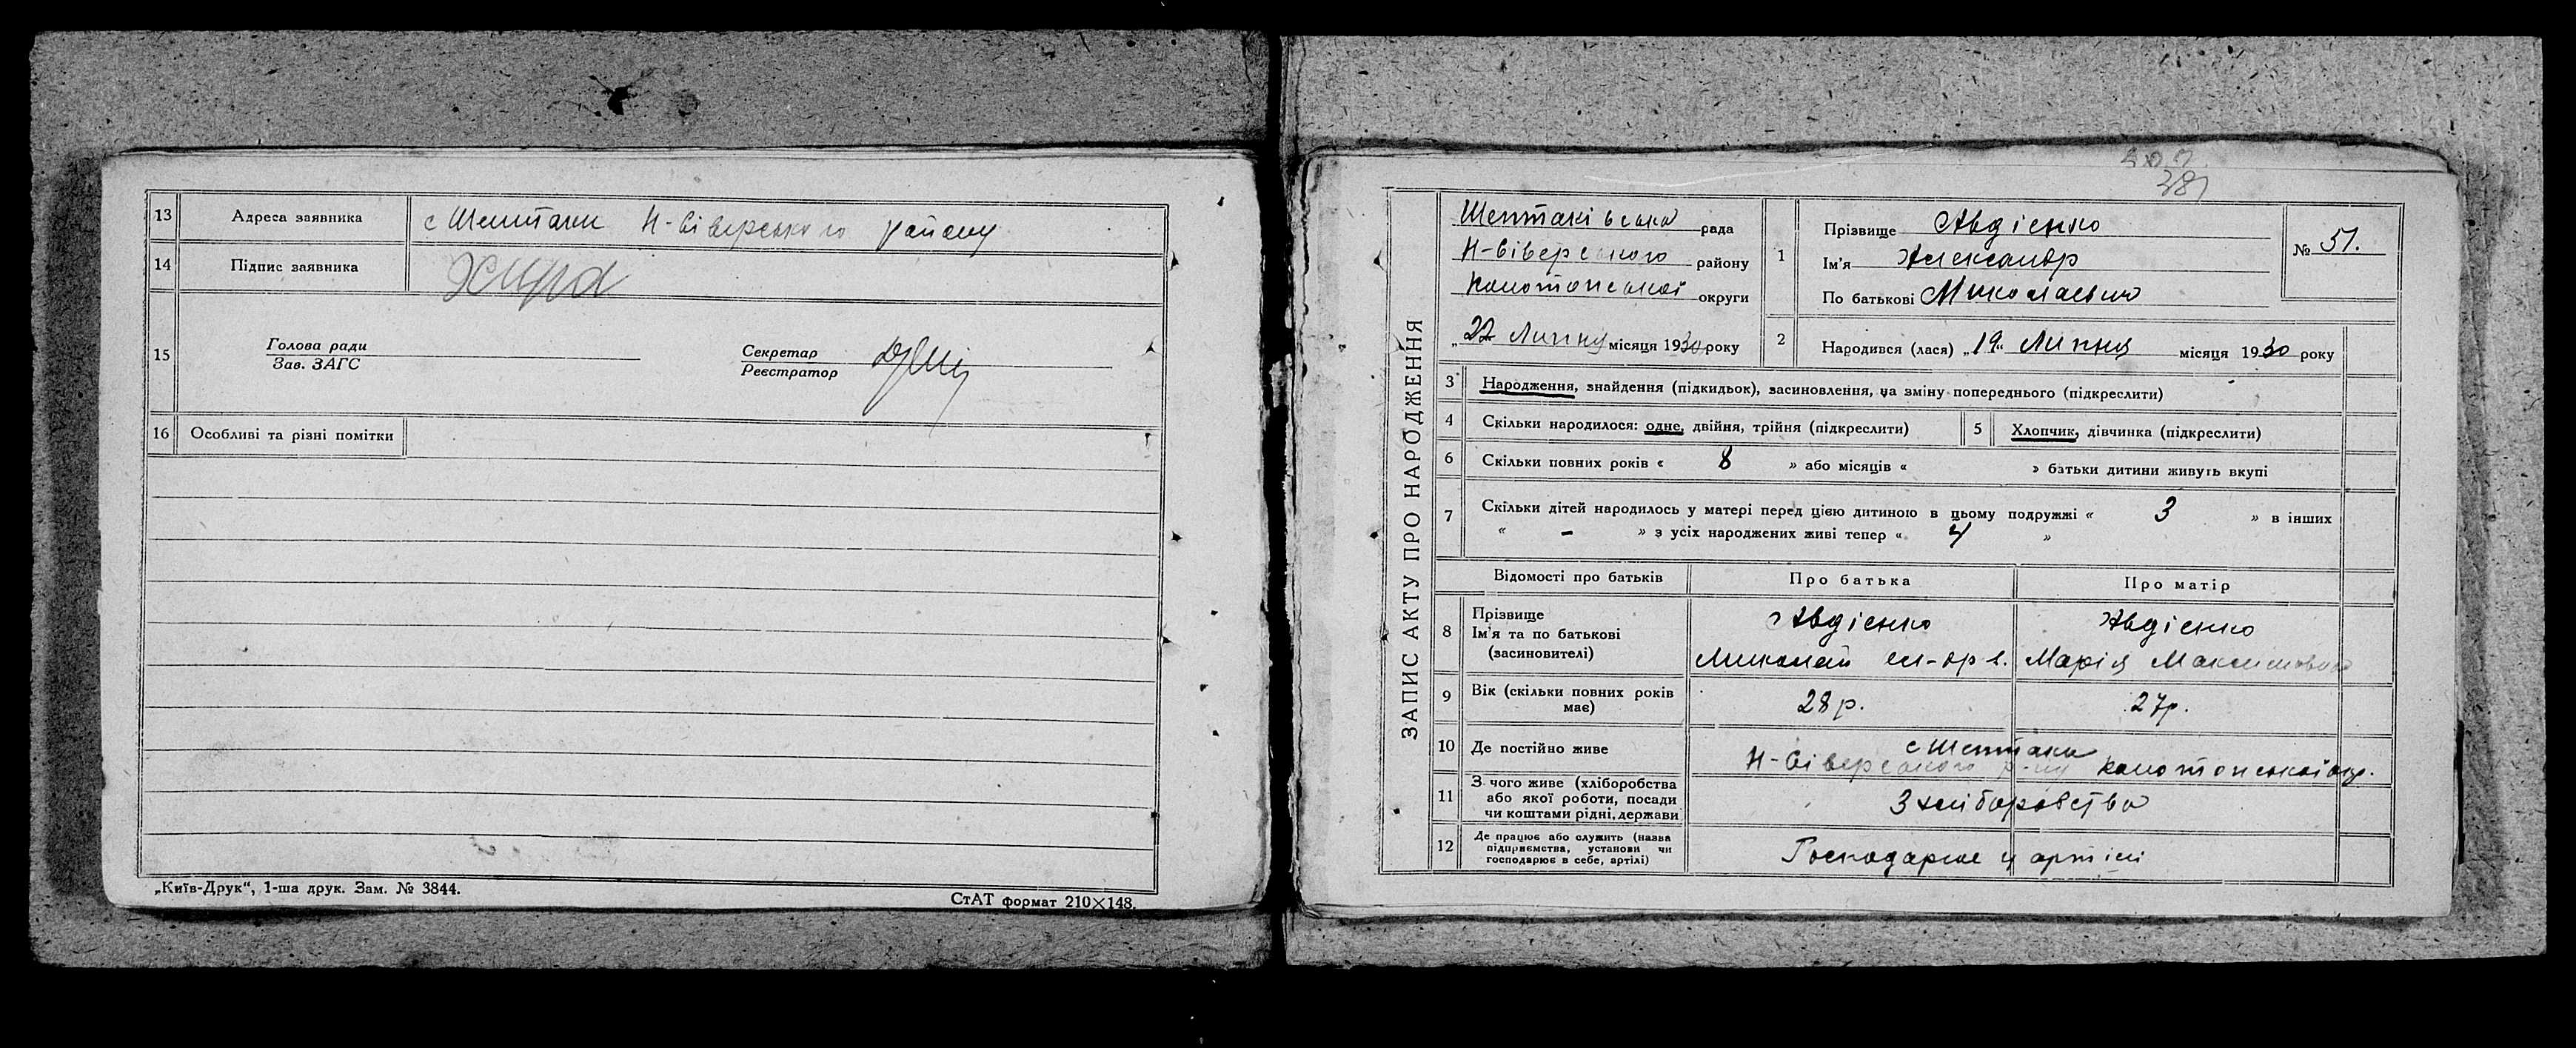 13 Адреса заявника с Шептаки Н-Сіверського району
14 Підпис заявника
15 Голова ради
Зав. ЗАГС
Секретар
Реєстратор
16 Особливі та різні помітки
„Київ-Друк“, 1-ша друк. Зам. № 3844.
СтАТ формат 210×148.
381
ЗАПИС АКТУ ПРО НАРОДЖЕННЯ
Шептаківська рада
Н-Сіверського району
Конотопської округи
„22 Липня місяця 1930 року
1 Прізвище Авдієнко
Ім'я Александр
По батькові Миколаевич
№ 51.
2 Народився (лася) „19“ Липня місяця 1930 року
3 Народження, знайдення (підкидьок), засиновлення, на зміну попереднього (підкреслити)
4 Скільки народилося: одне, двійня, трійня (підкреслити)
5 Хлопчик, дівчинка (підкреслити)
6 Скільки повних років « 8 » або місяців « » батьки дитини живуть вкупі
7 Скільки дітей народилось у матері перед цією дитиною в цьому подружжі « 3 » в інших
« - » з усіх народжених живі тепер « 4 »
Відомості про батьків Про батька Про матір
8 Прізвище
Ім'я та по батькові
(засиновителі)
Авдієнко
Миколай
Авдієнко
Марія Максимовна
9 Вік (скільки повних років має) 28 р. 27 р.
10 Де постійно живе с Шептаки
Н-Сіверського р-ну Конотопської окр.
11 З чого живе (хліборобства
або якої роботи, посади
чи коштами рідні, держави
З хліборобства
12 Де працює або служить (назва
підприємства, установи чи
господарює в себе, артілі)
Господарює у артілі